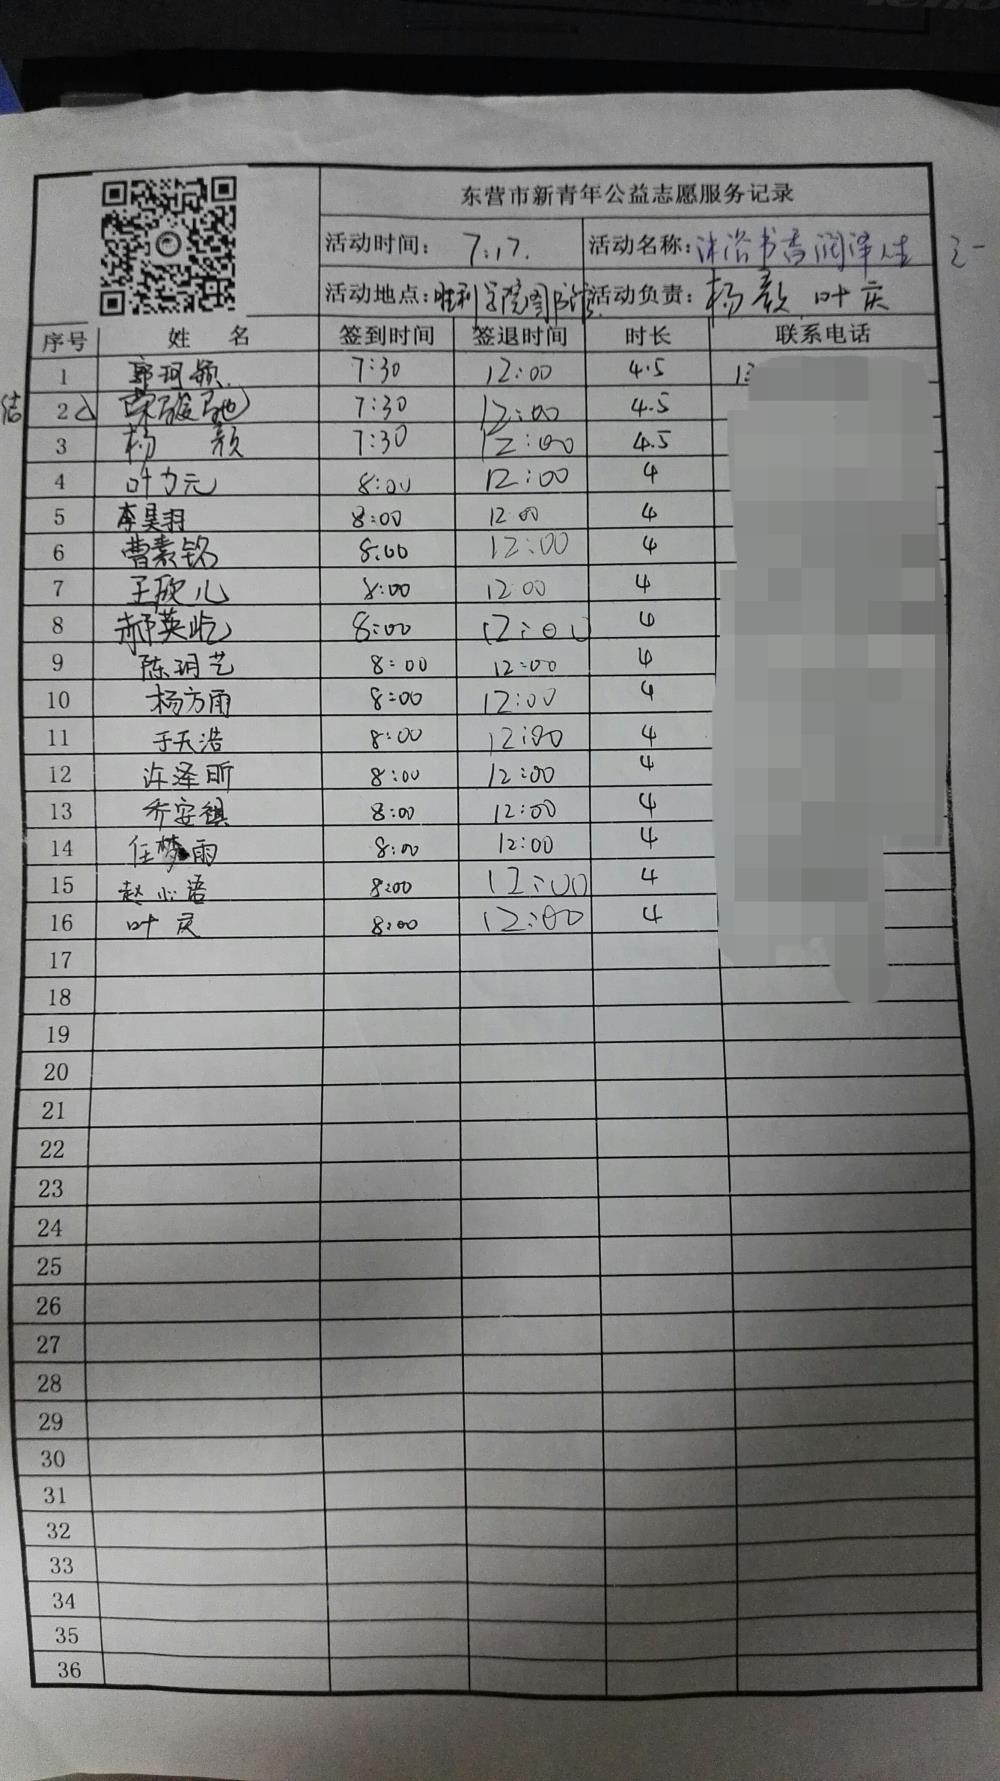 东营市新青年公益志愿服务记录
活动时间： 7.17. 活动名称：沐浴书香润泽人生 之一
活动地点：胜利学院图书馆 活动负责：杨颜 叶庆
序号 姓 名 签到时间 签退时间 时长 联系电话
1 郭珂颖 7:30 12:00 4.5 13
结 2 7:30 12:00 4.5
3 杨 颜 7:30 12:00 4.5
4 叶力元 8:00 12:00 4
5 李昊羽 8:00 12:00 4
6 曹素铭 8:00 12:00 4
7 王欣儿 8:00 12:00 4
8 郝英屹 8:00 12:00 4
9 陈玥艺 8:00 12:00 4
10 杨方雨 8:00 12:00 4
11 于天浩 8:00 12:00 4
12 许泽昕 8:00 12:00 4
13 乔安祺 8:00 12:00 4
14 任梦雨 8:00 12:00 4
15 赵心语 8:00 12:00 4
16 叶庆 8:00 12:00 4
17
18
19
20
21
22
23
24
25
26
27
28
29
30
31
32
33
34
35
36